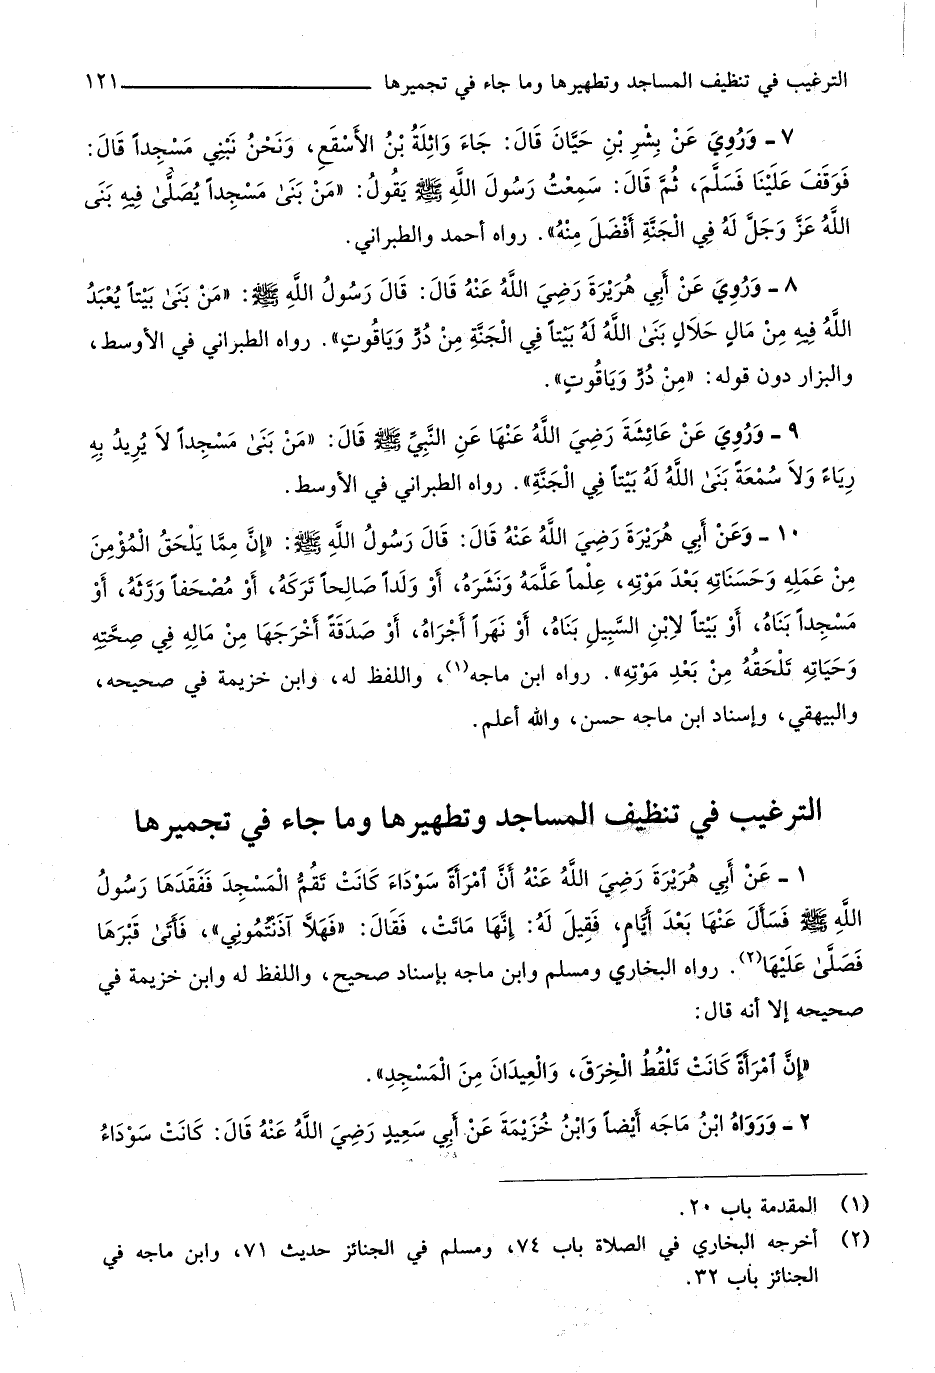 الترغيب في تنظيف المساجد وتطهيرها وما جاء في تجميرها ١٢١
٧ ـ وَرُوِيَ عَنْ بِشْرِ بْنِ حَيَّانَ قَالَ: جَاءَ وَاثِلَةُ بْنُ الأَسْقَعِ، وَنَحْنُ نَبْنِي مَسْجِداً قَالَ:
فَوَقَفَ عَلَيْنَا فَسَلَّمَ، ثُمَّ قَالَ: سَمِعْتُ رَسُولَ اللَّهِ ﷺ يَقُولُ: «مَنْ بَنَىٰ مَسْجِداً يُصَلَّىٰ فِيهِ بَنَى
اللَّهُ عَزَّ وَجَلَّ لَهُ فِي الْجَنَّةِ أَفْضَلَ مِنْهُ». رواه أحمد والطبراني.
٨ ـ وَرُوِيَ عَنْ أَبِي هُرَيْرَةَ رَضِيَ اللَّهُ عَنْهُ قَالَ: قَالَ رَسُولُ اللَّهِ ﷺ: «مَنْ بَنَىٰ بَيْتاً يُعْبَدُ
اللَّهُ فِيهِ مِنْ مَالٍ حَلَالٍ بَنَىٰ اللَّهُ لَهُ بَيْتاً فِي الْجَنَّةِ مِنْ دُرٍّ وَيَاقُوتٍ». رواه الطبراني في الأوسط،
والبزار دون قوله: «مِنْ دُرٍّ وَيَاقُوتٍ».
٩ ـ وَرُوِيَ عَنْ عَائِشَةَ رَضِيَ اللَّهُ عَنْهَا عَنِ النَّبِيِّ ﷺ قَالَ: «مَنْ بَنَىٰ مَسْجِداً لاَ يُرِيدُ بِهِ
رِيَاءً وَلاَ سُمْعَةً بَنَىٰ اللَّهُ لَهُ بَيْتاً فِي الْجَنَّةِ». رواه الطبراني في الأوسط.
١٠ ـ وَعَنْ أَبِي هُرَيْرَةَ رَضِيَ اللَّهُ عَنْهُ قَالَ: قَالَ رَسُولُ اللَّهِ ﷺ: «إِنَّ مِمَّا يَلْحَقُ الْمُؤْمِنَ
مِنْ عَمَلِهِ وَحَسَنَاتِهِ بَعْدَ مَوْتِهِ، عِلْماً عَلَّمَهُ وَنَشَرَهُ، أَوْ وَلَداً صَالِحاً تَرَكَهُ، أَوْ مُصْحَفاً وَرَّثَهُ، أَوْ
مَسْجِداً بَنَاهُ، أَوْ بَيْتاً لاِبْنِ السَّبِيلِ بَنَاهُ، أَوْ نَهَراً أَجْرَاهُ، أَوْ صَدَقَةً أَخْرَجَهَا مِنْ مَالِهِ فِي صِحَّتِهِ
وَحَيَاتِهِ تَلْحَقُهُ مِنْ بَعْدِ مَوْتِهِ». رواه ابن ماجه(١)، واللفظ له، وابن خزيمة في صحيحه،
والبيهقي، وإسناد ابن ماجه حسن، والله أعلم.
الترغيب في تنظيف المساجد وتطهيرها وما جاء في تجميرها
١ ـ عَنْ أَبِي هُرَيْرَةَ رَضِيَ اللَّهُ عَنْهُ أَنَّ ٱمْرَأَةً سَوْدَاءَ كَانَتْ تَقُمُّ الْمَسْجِدَ فَفَقَدَهَا رَسُولُ
اللَّهِ ﷺ فَسَأَلَ عَنْهَا بَعْدَ أَيَّامٍ، فَقِيلَ لَهُ: إِنَّهَا مَاتَتْ، فَقَالَ: «فَهَلاَّ آذَنْتُمُونِي»، فَأَتَىٰ قَبْرَهَا
فَصَلَّىٰ عَلَيْهَا(٢). رواه البخاري ومسلم وابن ماجه بإسناد صحيح، واللفظ له وابن خزيمة في
صحيحه إلا أنه قال:
«إِنَّ ٱمْرَأَةً كَانَتْ تَلْقُطُ الْخِرَقَ، وَالْعِيدَانَ مِنَ الْمَسْجِدِ».
٢ ـ وَرَوَاهُ ابْنُ مَاجَه أَيْضاً وَابْنُ خُزَيْمَةَ عَنْ أَبِي سَعِيدٍ رَضِيَ اللَّهُ عَنْهُ قَالَ: كَانَتْ سَوْدَاءُ
(١) المقدمة باب ٢٠.
(٢) أخرجه البخاري في الصلاة باب ٧٤، ومسلم في الجنائز حديث ٧١، وابن ماجه في
الجنائز باب ٣٢.